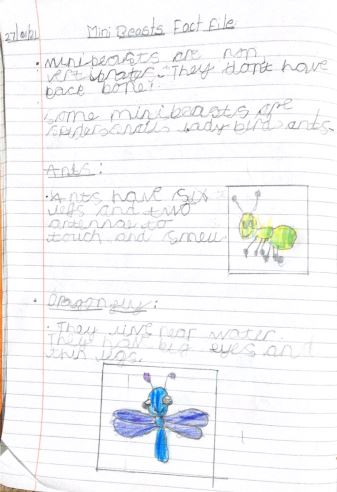 27/01/21
Mini Beasts Fact File
• minibeasts are non
vertibrates. They don't have
back bone.
some minibeasts are
spider snails ladybird ants.
Ants:
• Ants have six
legs and two
antennae to
touch and smell
• Dragonfly:
• They live near water.
They have big eyes and
thin legs.